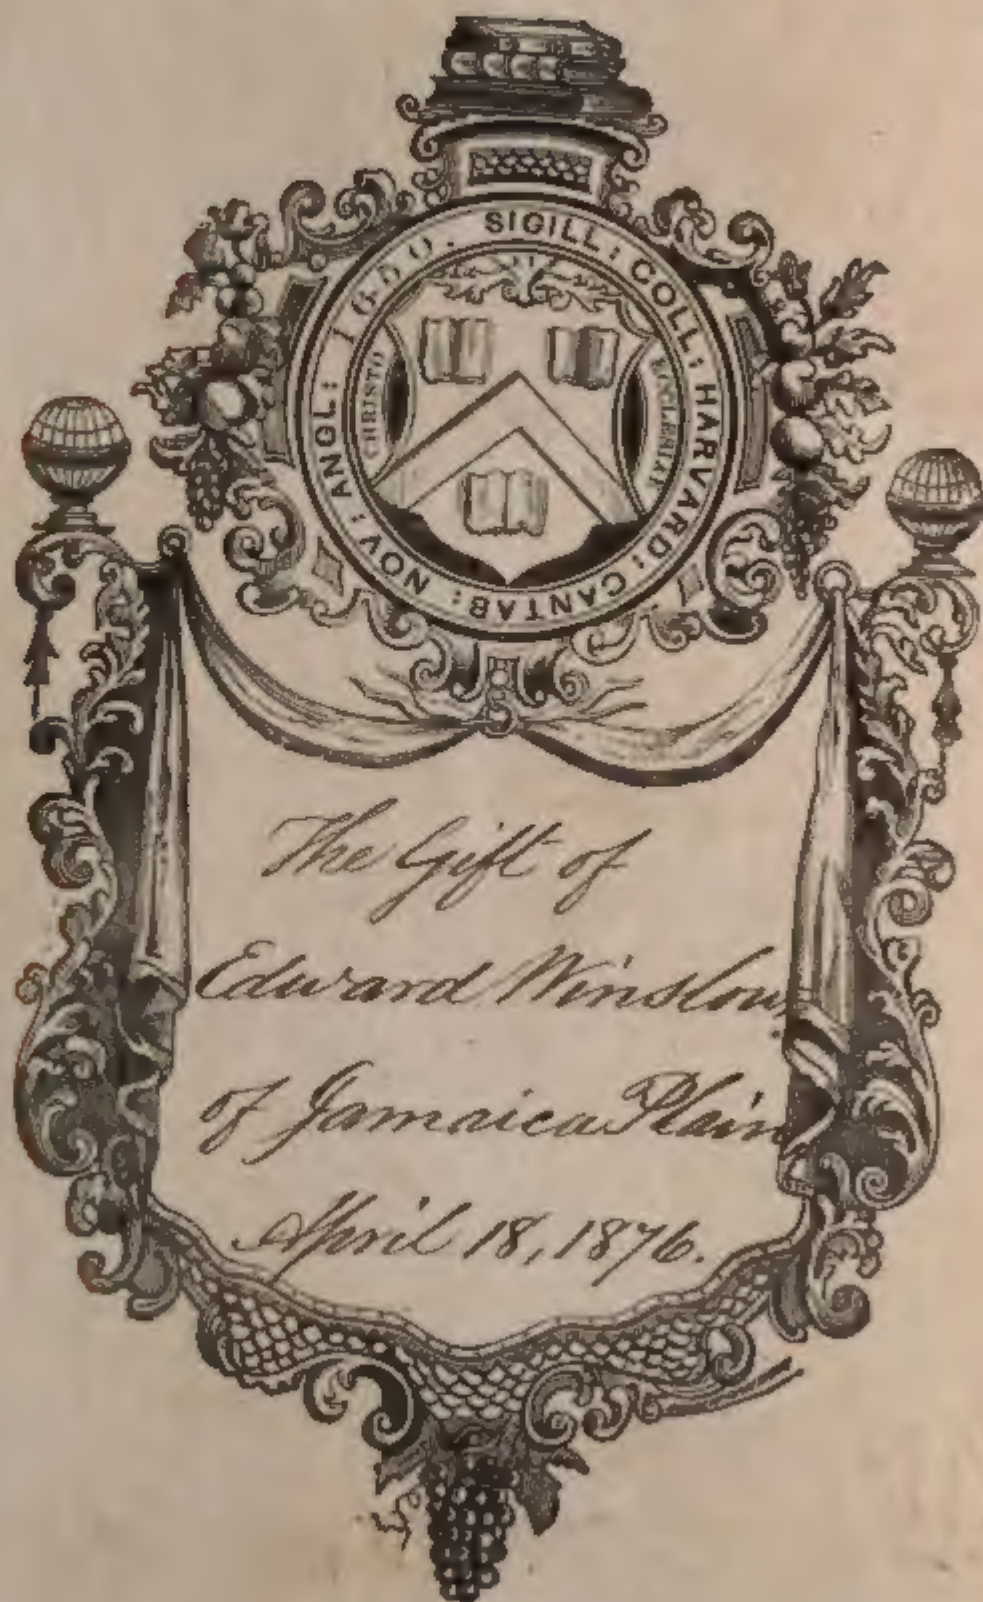 SIGILL: COLL: HARVARD: CANTAB: NOV: ANGL: 1650.
CHRISTO
ECCLESIAE
The Gift of
Edward Winslow,
of Jamaica Plain
April 18, 1876.